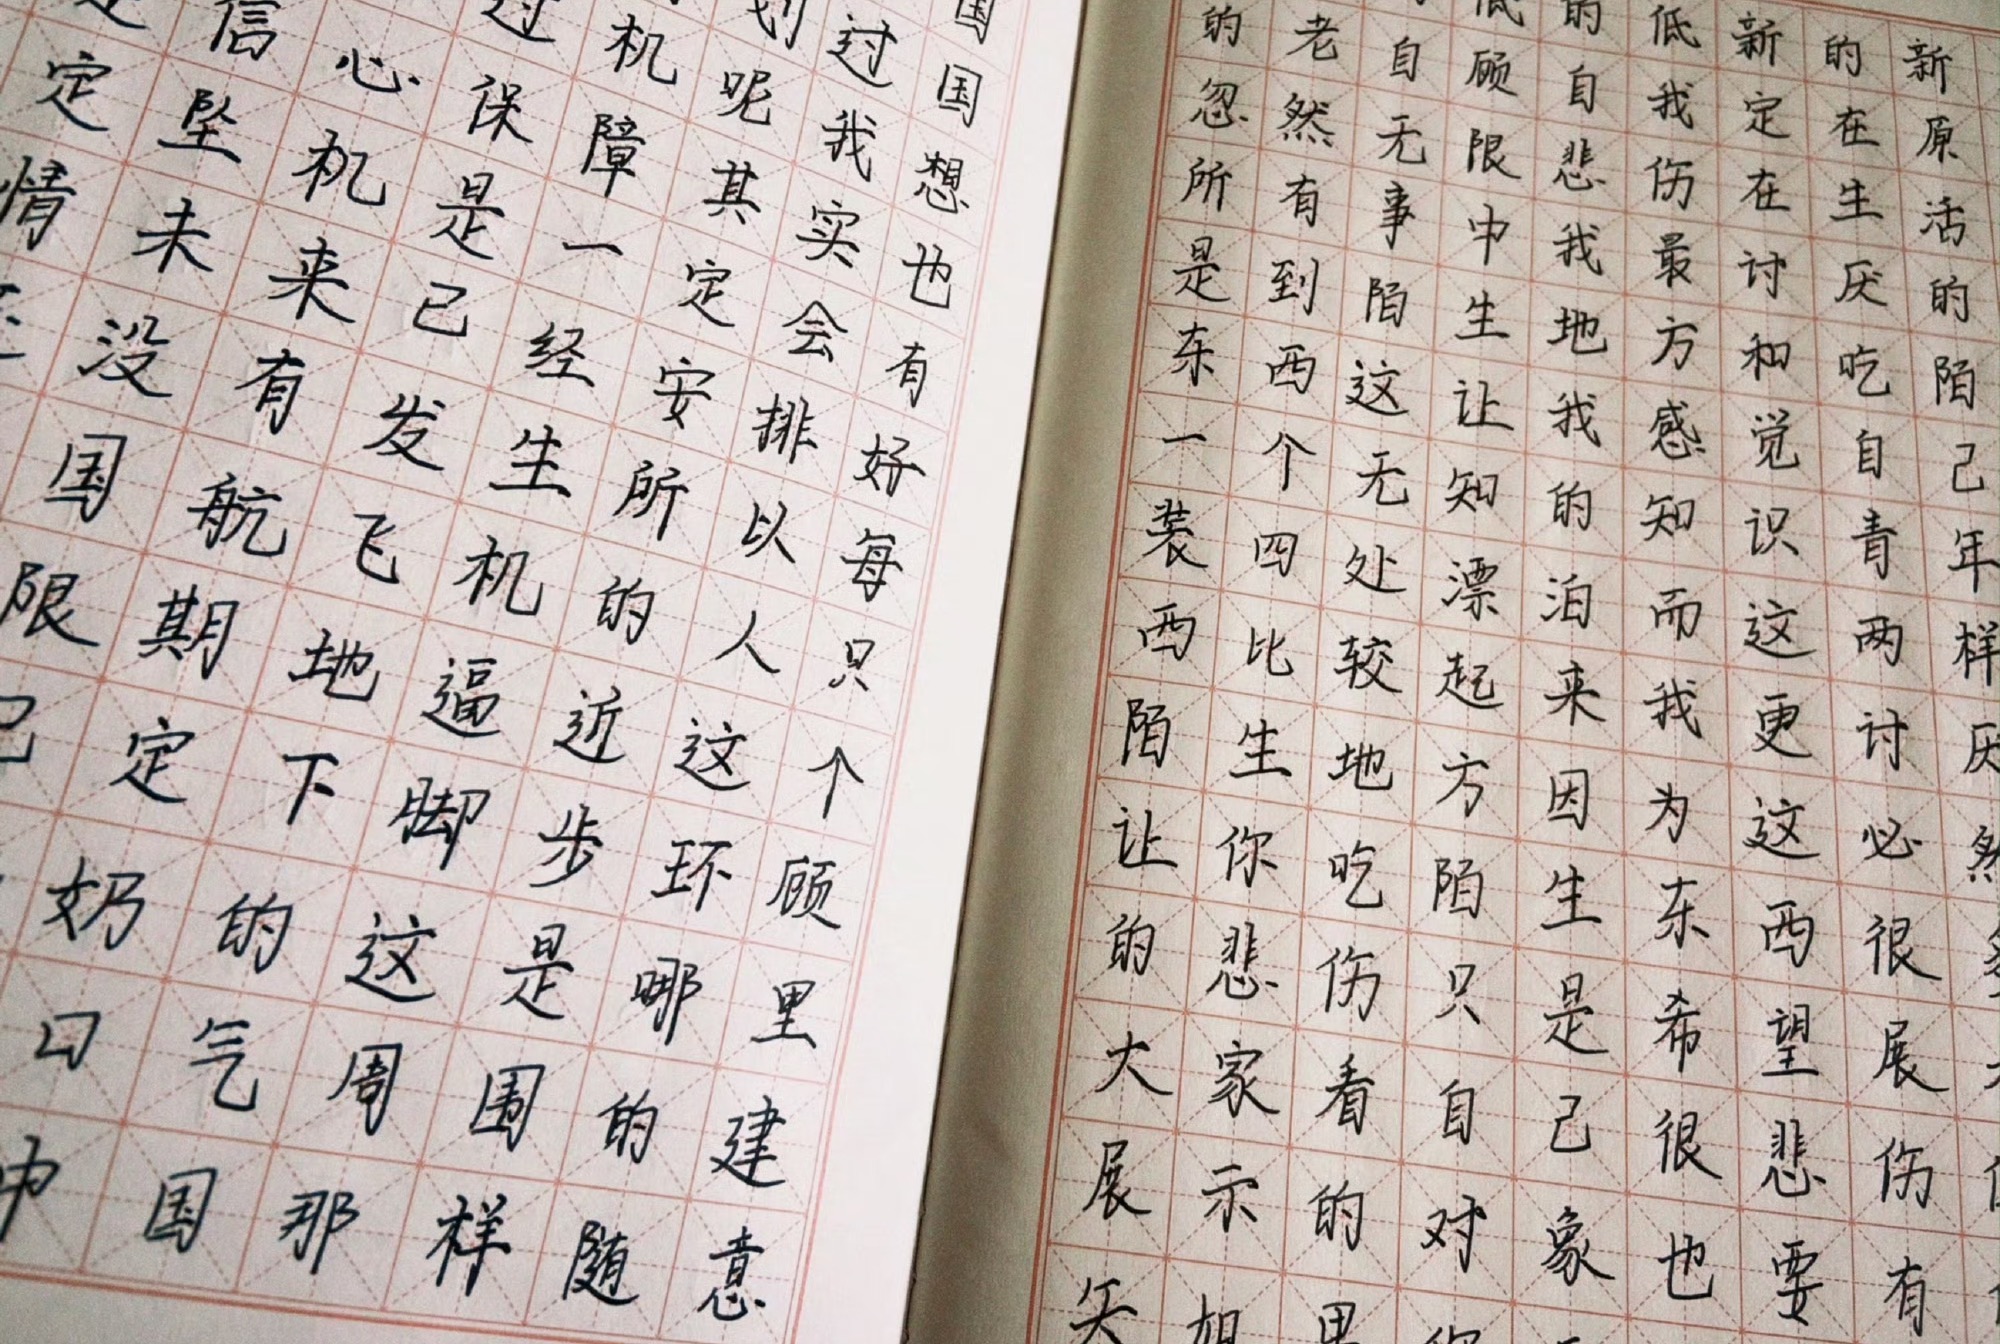 国
划过国
过机呢我想
信心保障其实也
定坠机是一定会有
情未来己经安排好
没有发生所以每
国航飞机的人只
限期地逼近这个
己定下脚步环顾
奶的这是哪里
口气周围的建
中国那样随意
的低新的新
的老自顾自我定在原
忽然无限悲伤在生活
所有事中我最讨厌的
是到陌生地方和吃陌
东西这让我感觉自己
一个无知的知识青年
装四处漂泊而这两样
西比较起来我更讨厌
陌生地方因为这必然
让你吃陌生东西很
的悲伤只是希望展
大家看自己很悲伤
展示的对象也要有
如果你